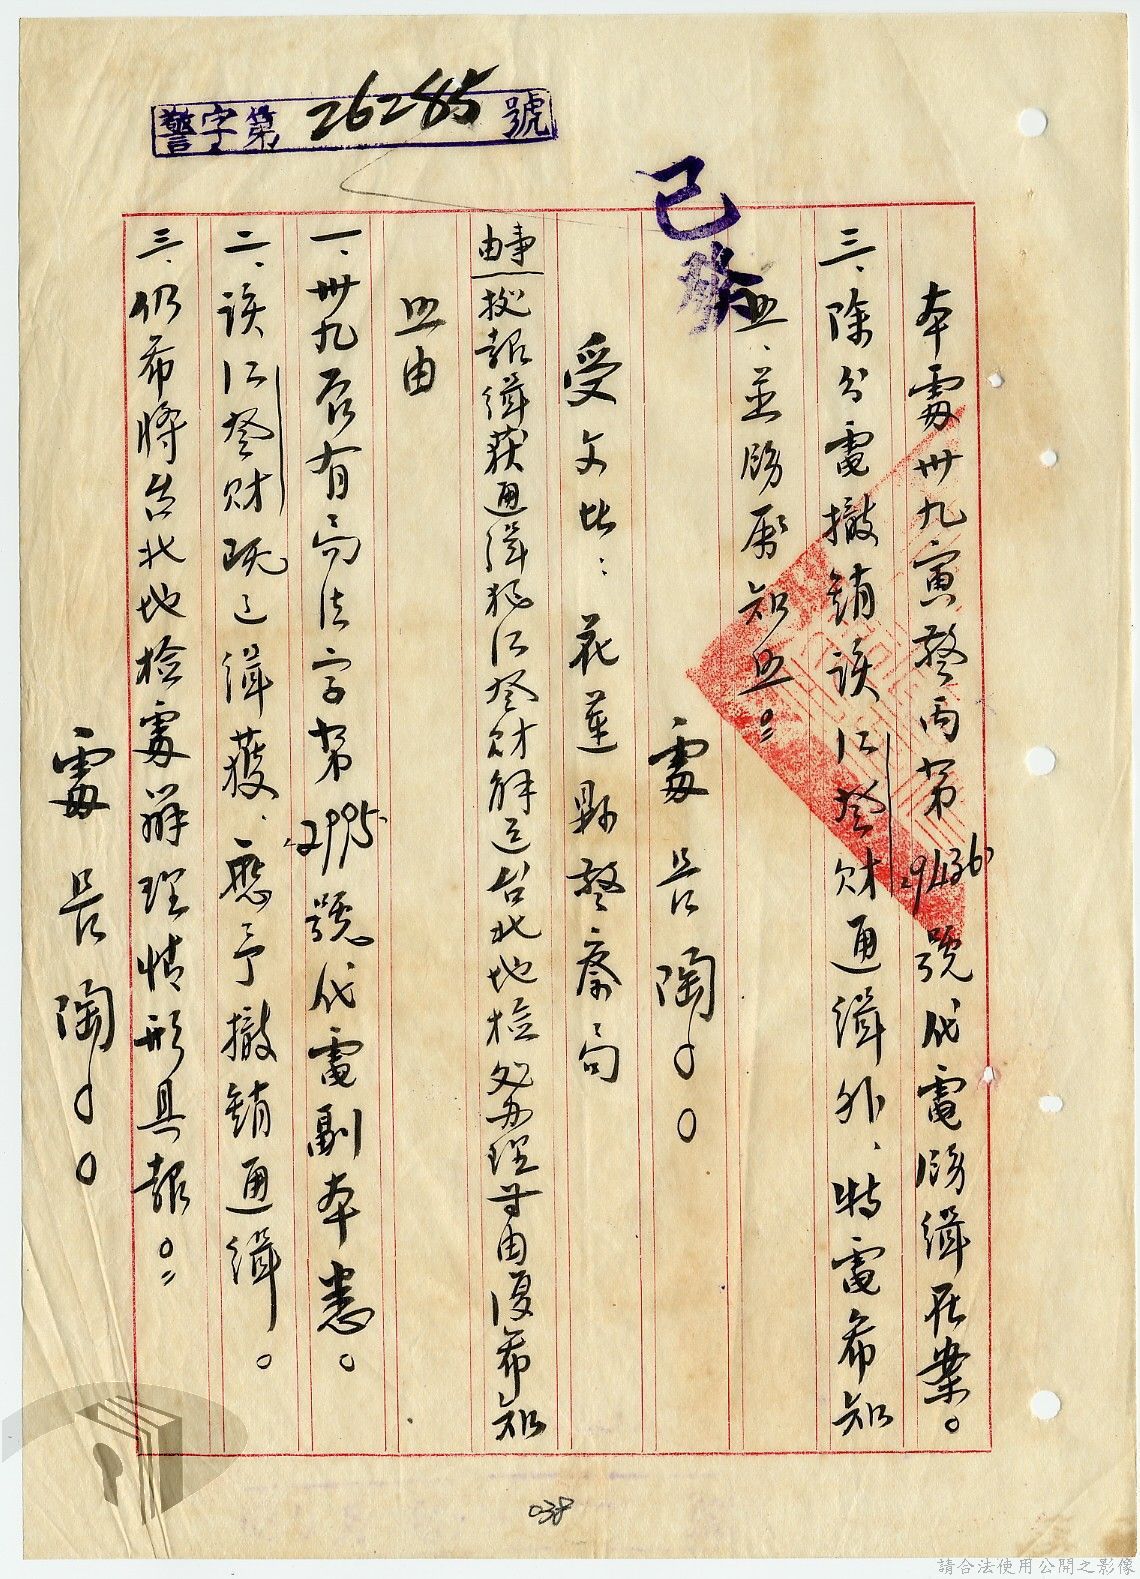 警字第26285號
已發
本處卅九寅警丙第29436號代電飭緝在案。
三、除分電撤銷該江登財通緝外、特電希知
照、並飭屬知照。
處長陶
受文者：花蓮縣警察局
事由 據報緝獲通緝犯江登財解送台北地檢處辦理等由復希知
照由
一、卅九辰有高法字第2995號代電副本悉。
二、該江登財既已緝獲、應予撤銷通緝。
三、仍希將台北地檢處辦理情形具報。
處長陶
038
請合法使用公開之影像